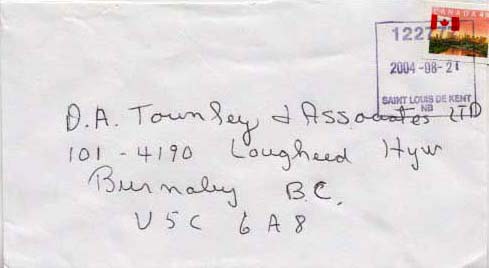 CANADA 4
2004-08-21
SAINT LOUIS DE KENT
NB
D.A. Townley & Associates LTD
101 - 4190 Lougheed Hyw
Burnaby B.C.
V5C 6A8